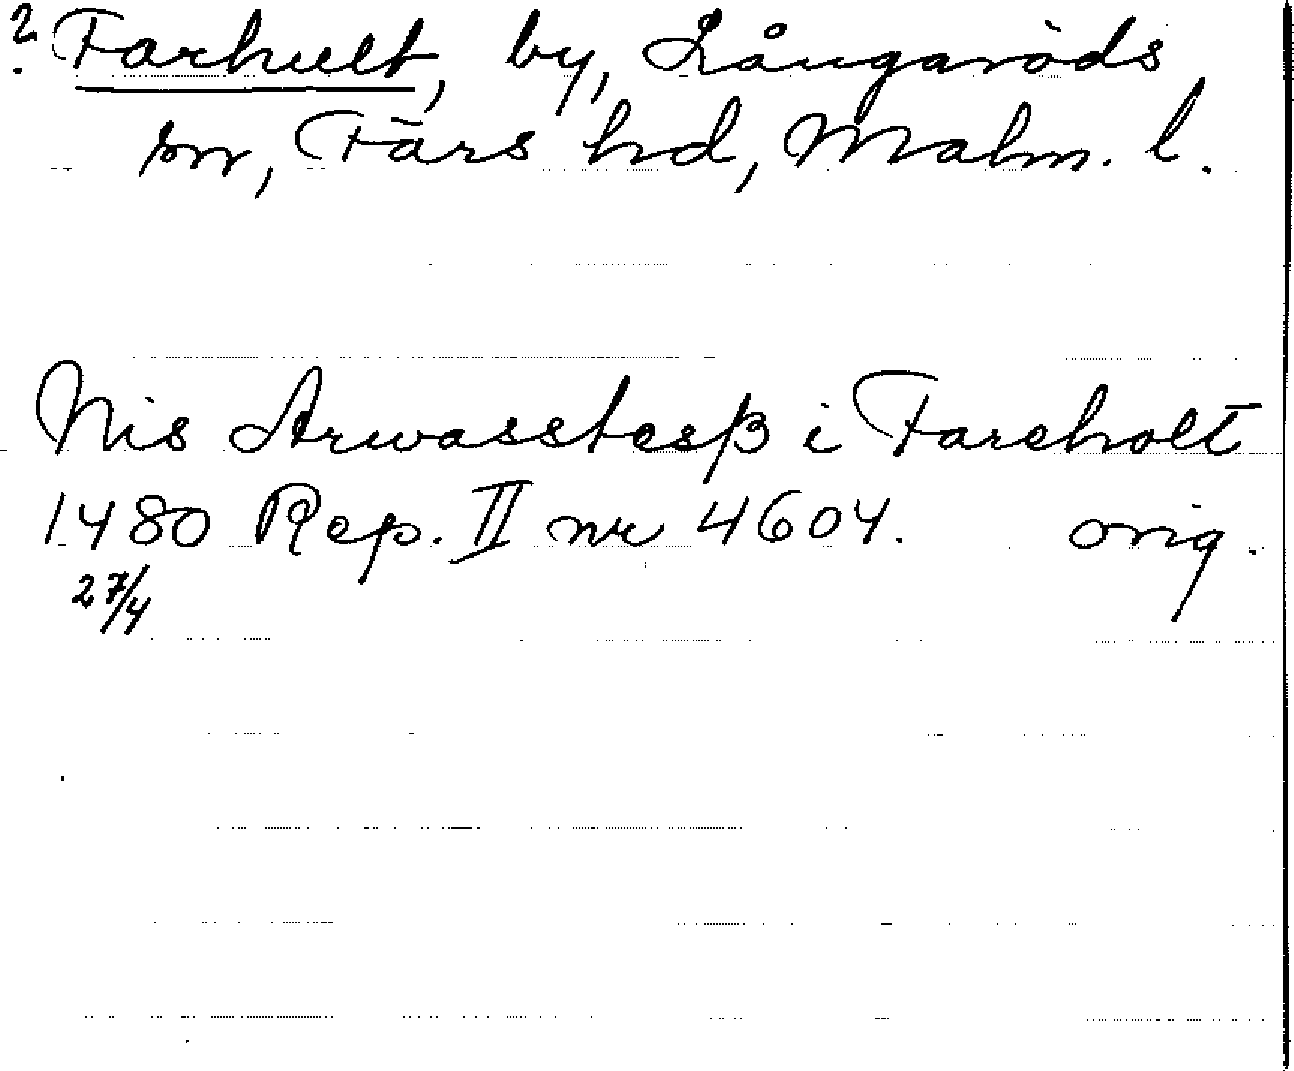 ? Farhult, by, Långaröds
sn, Färs hd, Malm. l.
Nis Arwasstesß i Fareholt
1480 Rep. II nr 4604. orig.
27/4